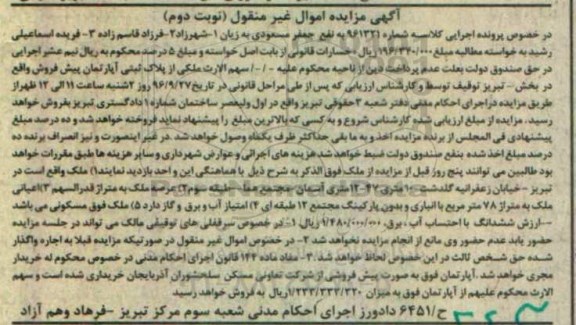 آگهی مزایده اموال غیر منقول (نوبت دوم)
در خصوص پرونده اجرایی کلاسه شماره ۹۶۱۳۲۱ به نفع جعفر مسعودی به زیان ۱-شهرزاد۲-فرزاد قاسم زاده ۳- فریده اسماعیلی
رشید به خواسته مطالبه مبلغ ۱۹۶/۳۴۰/۰۰۰ ریال خسارات قانونی از بابت اصل خواسته و مبلغ ۵ درصد محکوم به ریال نیم عشر اجرایی
در حق صندوق دولت بعلت عدم پرداخت دین از ناحیه محکوم علیه -/-/ سهم الارث ملکی از پلاک ثبتی آپارتمان پیش فروش واقع
در بخش - تبریز توقیف توسط و کارشناس ارزیابی که پس از طی مراحل قانونی در تاریخ ۹۶/۹/۲۷ روز ۲شنبه ساعت ۱۱ الی ۱۲ ظهر از
طریق مزایده در اجرای احکام مدنی دفتر شعبه ۳ حقوقی تبریز واقع در اول ولیعصر ساختمان شماره ۱ دادگستری تبریز بفروش خواهد
رسید. مزایده از مبلغ ارزیابی شده کارشناس شروع و به کسی که بالاترین مبلغ را پیشنهاد نماید فروخته خواهد شد و ده درصد مبلغ
پیشنهادی فی المجلس از برنده مزایده اخذ و به ما بقی حداکثر ظرف یکماه وصول خواهد شد. در غیر اینصورت و نیز انصراف برنده ده
درصد مبلغ اخذ شده بنفع صندوق دولت ضبط خواهد شد هزینه های اجرائی و عوارض شهرداری و سایر هزینه ها طبق مقررات خواهد
بود طالبین می توانند پنج روز قبل از مزایده از ملک فوق الذکر به شرح ذیل با هماهنگی این واحد بازدید نمایند۱) ملک واقع است در
تبریز - خیابان زعفرانیه گلدشت ۱۰ متری ۴۷-۱۲متری آسمان مجتمع مها - طبقه سوم۲) عرصه ملک به متراژ قدرالسهم ۳)اعیانی
ملک به متراژ ۷۸ متر مربع با انباری و بدون پارکینگ مجتمع ۱۲ طبقه ای ۴) امتیاز آب و برق و گاز دارد ۵) ملک فوق مسکونی می باشد
--ارزش ششدانگ با احتساب آب ، برق، ۱/۴۸۰/۰۰۰/۰۰۰ ریال. ۱- در خصوص سرقفلی های توقیفی مالک می تواند در جلسه مزایده
حضور یابد عدم حضور وی مانع از انجام مزایده نخواهد شد ۲- در خصوص اموال غیر منقول در صورتیکه مزایده قبلا به اجاره واگذار
شده حق شخص ثالث در این خصوص لحاظ خواهد شد. ۳- مفاد ماده ۱۴۴ قانون اجرای احکام مدنی در خصوص محکوم له خریدار
مجری خواهد شد. آپارتمان فوق به صورت پیش فروشی از شرکت تعاونی مسکن سلحشوران آذربایجان خریداری شده است و سهم
الارث محکوم علیهم از آپارتمان فوق به میزان ۱/۲۳۳/۳۳۳/۳۲۰ریال به فروش خواهد رسید
ح/۶۴۵۱ دادورز اجرای احکام مدنی شعبه سوم مرکز تبریز -فرهاد وهم آزاد